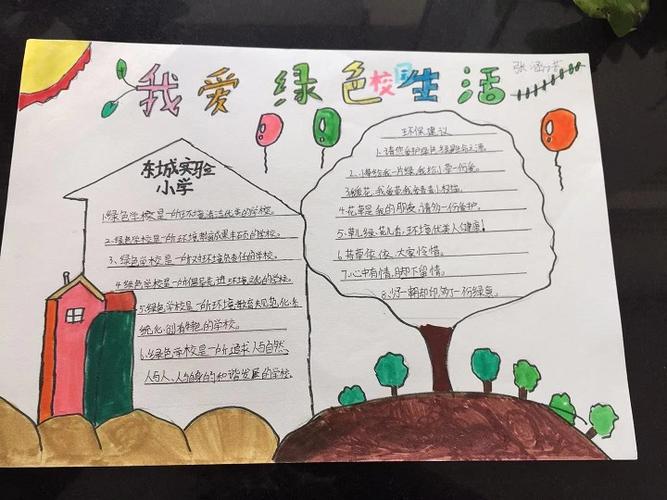 我爱绿色校园生活
张
东城实验
小学
1.绿色学校是一所环境清洁优美的学校。
2.绿色学校是一所环境教育成果丰硕的学校。
3、绿色学校是一所对环境负责任的学校。
4.绿色学校是一所倡导先进环境文化的学校。
5.绿色学校是一所环境教育规范化、系
统化、创有特色的学校。
6、绿色学校是一所追求人与自然、
人与人、人与自身的和谐发展的学校。
环保建议
1.请您爱护绿色
2.得给我一片绿,我给你一份爱。
4.花草是我的朋友,请勿一份爱护。
5.草儿绿,花儿香,环境优美人健康!
6.芳草依依,大家怜惜。
7.心中有情,脚下留情。
8.少一